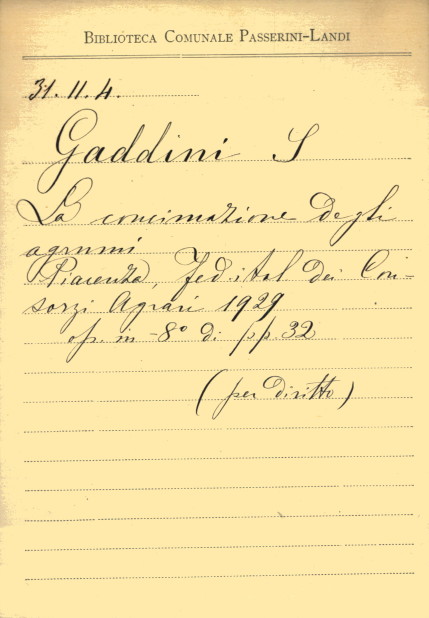 BIBLIOTECA COMUNALE PASSERINI-LANDI
31.11.4.
Gaddini S
La concimazione degli
agrumi
Piacenza, Fed. ital dei Con-
sorzi Agrari 1929
op. in -8° di pp. 32
(per diritto)